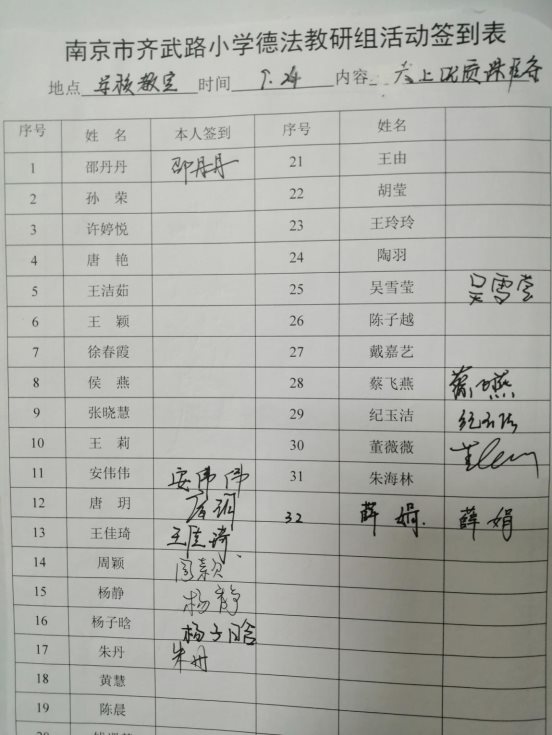 南京市齐武路小学德法教研组活动签到表
地点 学校教室 时间 9.24 内容 上优质课准备
序号 姓 名 本人签到 序号 姓名
1 邵丹丹 邵丹丹 21 王由
2 孙 荣 22 胡莹
3 许婷悦 23 王玲玲
4 唐 艳 24 陶羽
5 王洁茹 25 吴雪莹 吴雪莹
6 王 颖 26 陈子越
7 徐春霞 27 戴嘉艺
8 侯 燕 28 蔡飞燕 蔡飞燕
9 张晓慧 29 纪玉洁 纪玉洁
10 王 莉 30 董薇薇
11 安伟伟 安伟伟 31 朱海林
12 唐 玥 唐玥 32 薛娟. 薛娟
13 王佳琦 王佳琦
14 周颖 周颖
15 杨静 杨静
16 杨子晗 杨子晗
17 朱丹 朱丹
18 黄慧
19 陈晨